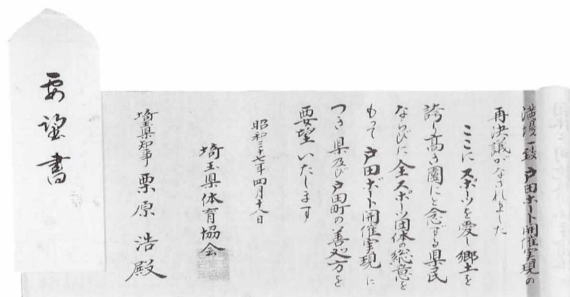 要望書
満場一致戸田ボート開催実現の
再決議がなされました
ここにスポーツを愛し郷土を
誇り高き園にと念ずる県民
ならびに全スポーツ団体の総意を
もって戸田ボート開催実現に
つき県及び戸田町の善処方を
要望いたします
昭和三十七年四月十八日
埼玉県体育協会
埼玉県知事 栗原浩殿